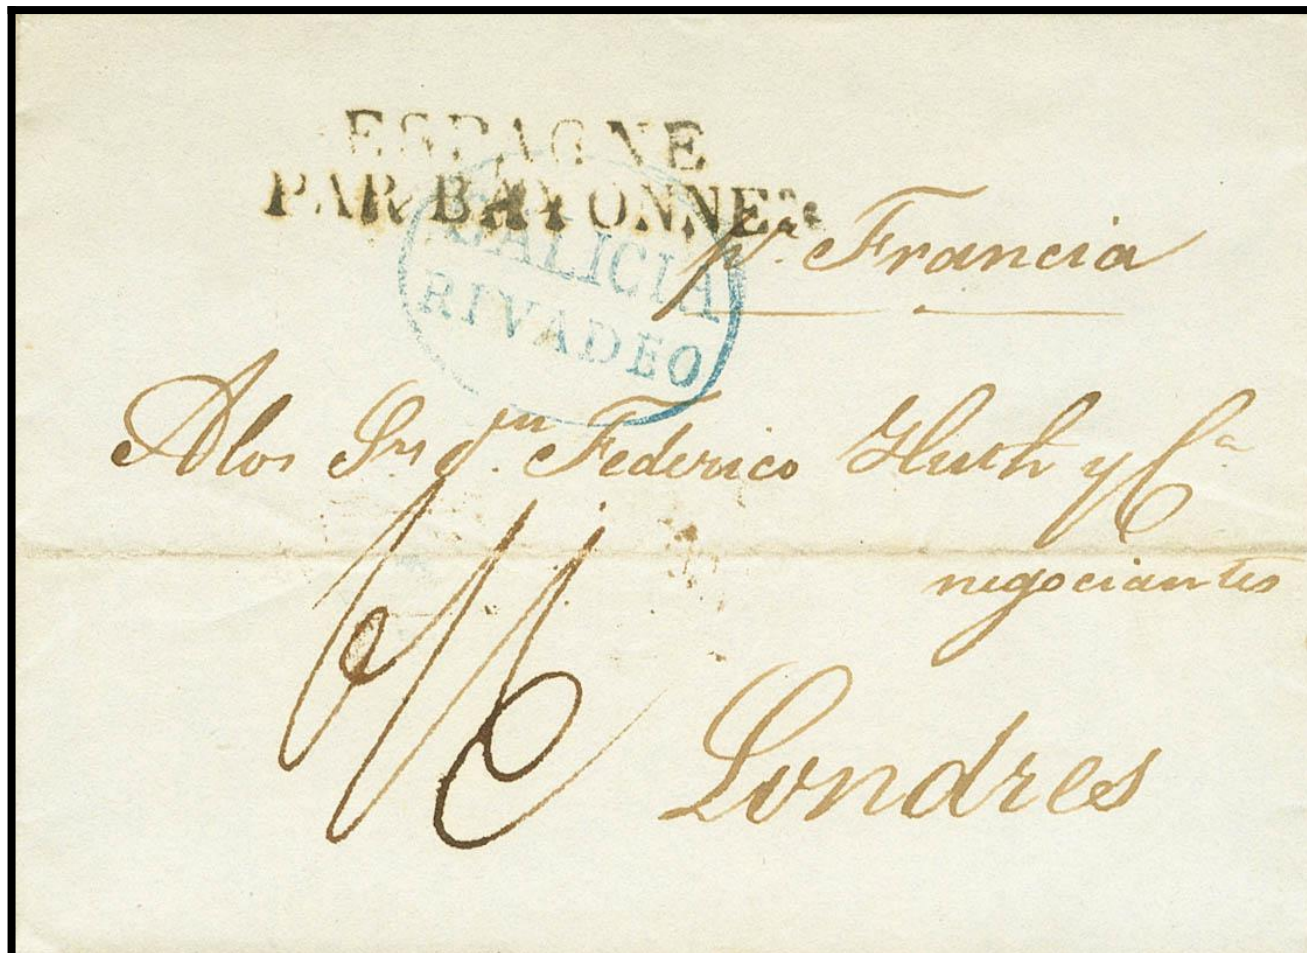 ESPAGNE
PAR BAYONNE
GALICIA
RIVADEO
pr. Francia
A los Srs Dn Federico Huth y Ca
negociantes
Londres